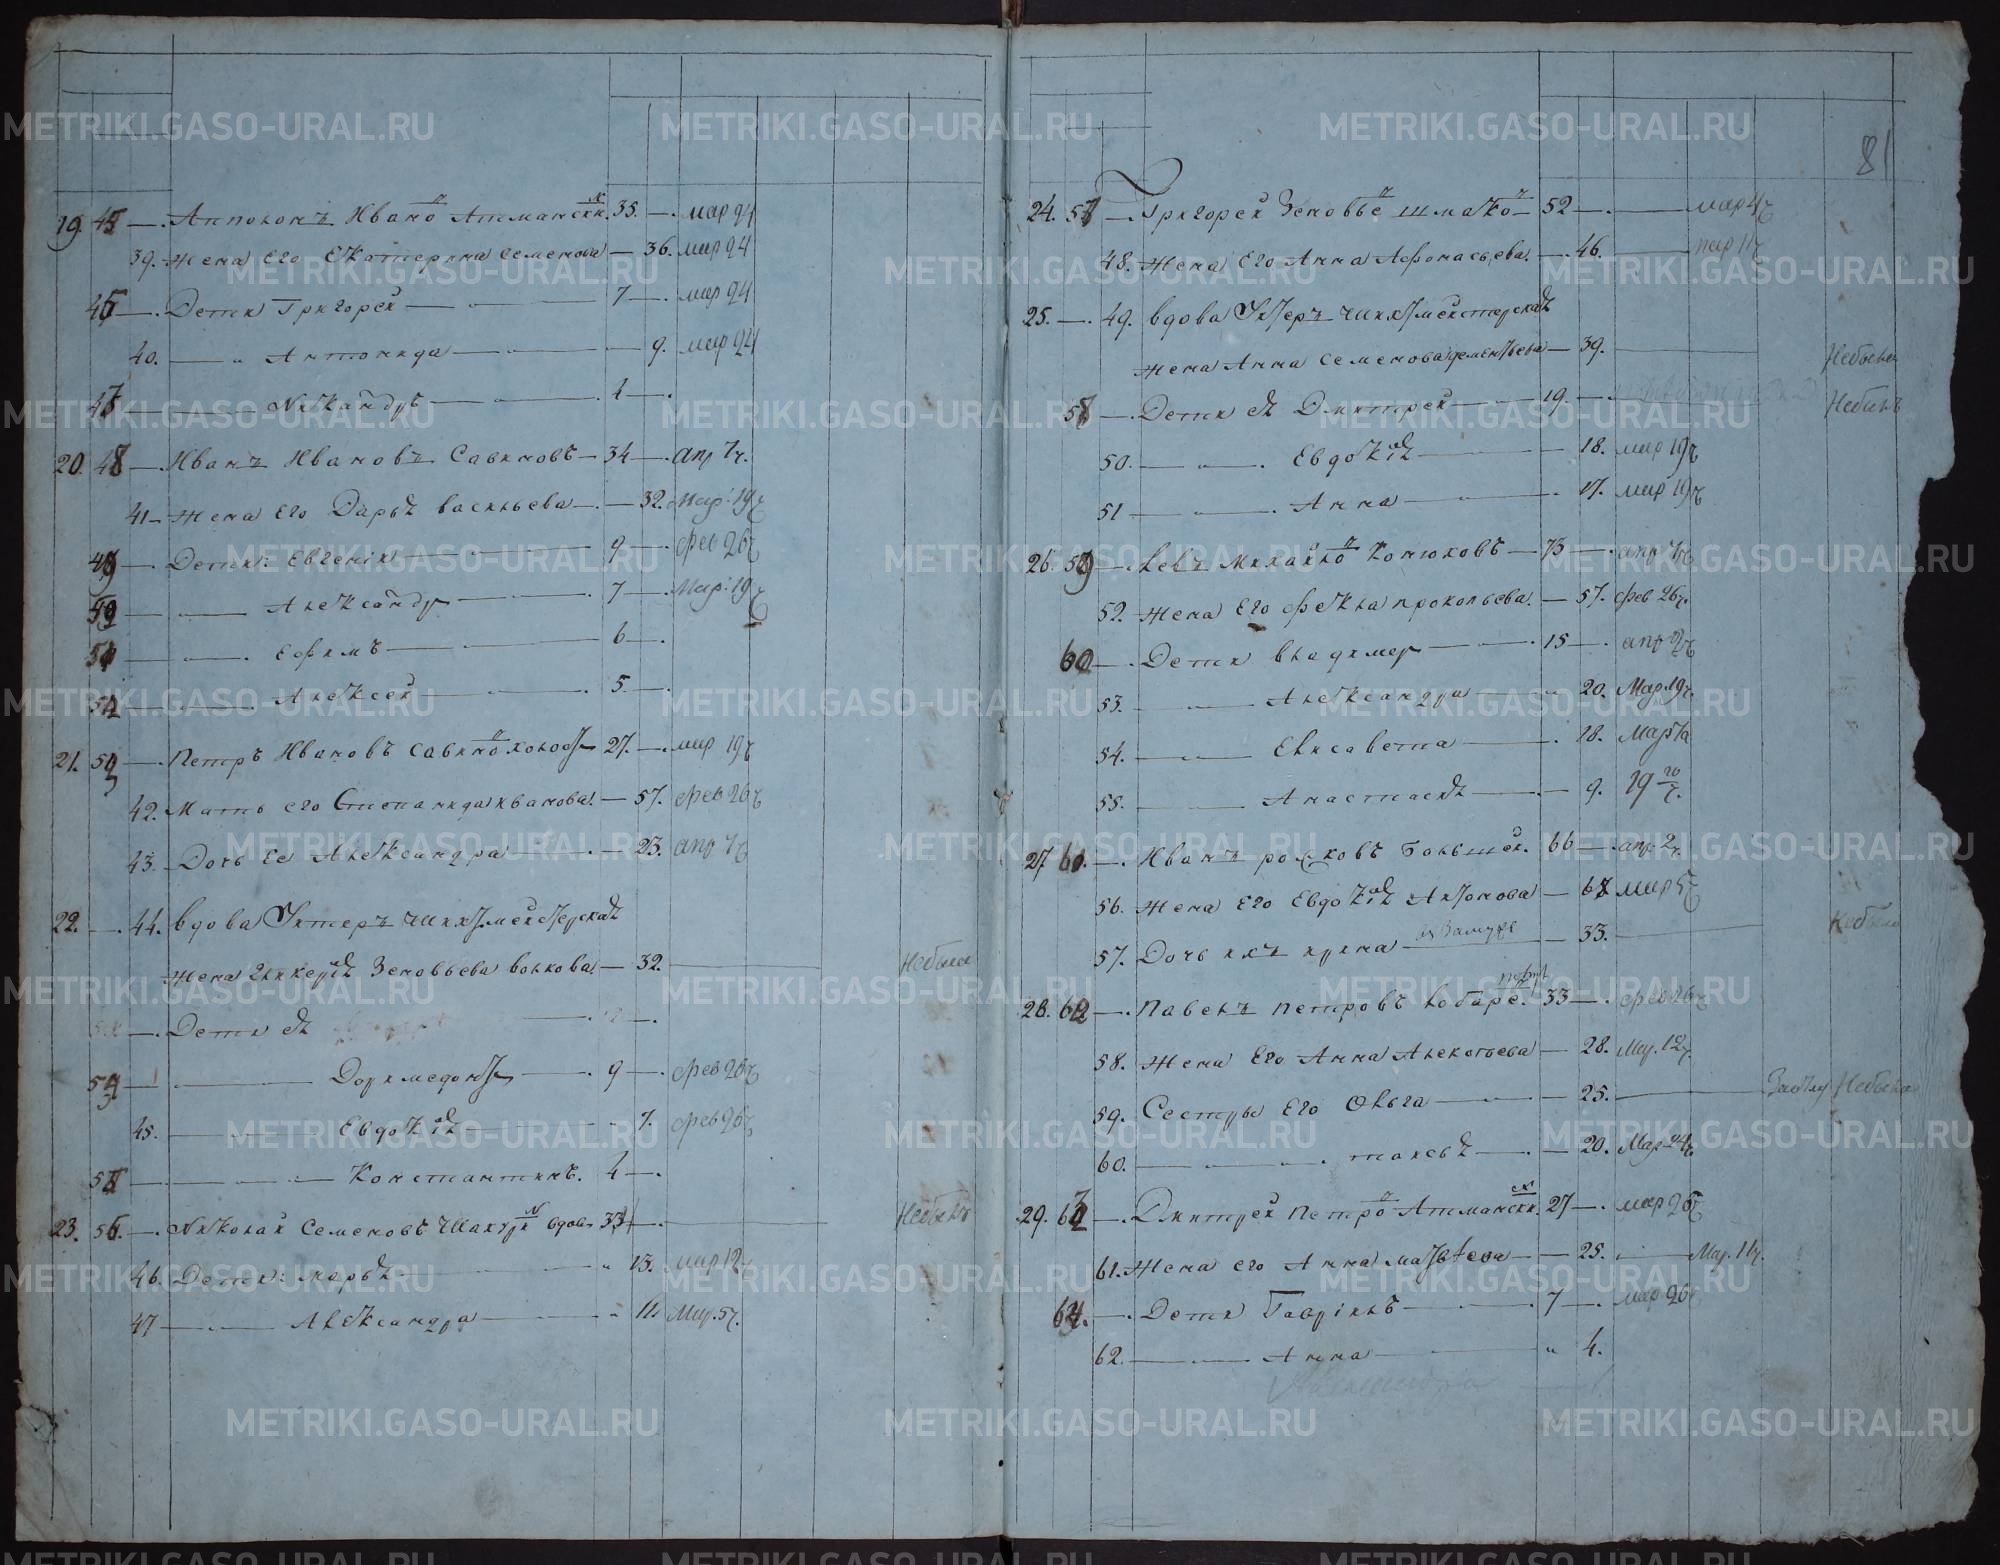 19. 45 Апполонъ Ивано Атманскн. 35. мар 24
39. Жена его Екатерина Семенова 36. мар 24
Дети Григорей 7 мар 24
40. Антонида 9. мар 24
Никандръ 1
20. 48 Иванъ Ивановъ Савиновъ 34 апр 7ч.
41 Жена его Дарья васильева 32. Мар. 19ч
49 Дети: Евгений 9 фев 26ч
50 Александр 7 Мар. 19ч
51 Ефимъ 6
52 Алексей 5.
21. 53 Петръ Ивановъ Савино холост 27. мар 19ч
42. Мать его Степанида иванова. 57. фев 26ч
43. Дочь ее Александра 23. апр 7ч
22. 44. вдова Унтеръ шихтмейстерская
Жена Гликерия Зеновьева волкова 32. Небыла
Дети ея
54 Доримедонт 9 фев 26ч
45. Евдокия 7. фев 26ч
55 Константинъ. 4
23. 56. Николай Семеновъ Шахури вдовъ 33 Небылъ
46. Дети: марья 13. мар 12ч
47 Александра 11. Мар. 5ч.
81
24. 57 Григорей Зеновье шмако 52 мар 4ч
48. Жена его Анна Афонасьева. 46. мар 11ч
25. 49. вдова Унтеръ шихтмейстерская
жена Анна Семенова дементьева 39. Небыла
58 Дети ея Дмитрей 19. Небылъ
50. Евдокия 18. мар 19ч
51 Анна 17. мар 19ч
26. 59 Левъ Михайло Конюховъ 73 апр 7ч
52. Жена его фекла прокопьева. 57. фев 26ч.
60 Дети владимер 15 апр 2ч
53. Александра 20. Мар. 19ч.
54. Елисавета 18. Марта
55. Анастасия 9. 19 го ч.
27. 61. Иванъ романовъ Большей. 66 апр. 2ч.
56. Жена его Евдокия Антонова 67 мар 5ч
57. Дочь ихъ ирина в Замуже 33. Небыла
28. 62 Павелъ петровъ 33 фев 26ч
58. Жена Его Анна Алексеева 28. Мар. 12ч.
59. Сестры Его Ольга 25. Небыла
60. таисья 20. Мар. 24ч.
29. 63 Дмитрей петро Атманскн. 27 мар 26ч
61. Жена его Анна матвеева 25. Мар. 11ч.
64. Дети Гаврилъ 7 мар 26ч
62. Анна 4.
Александра